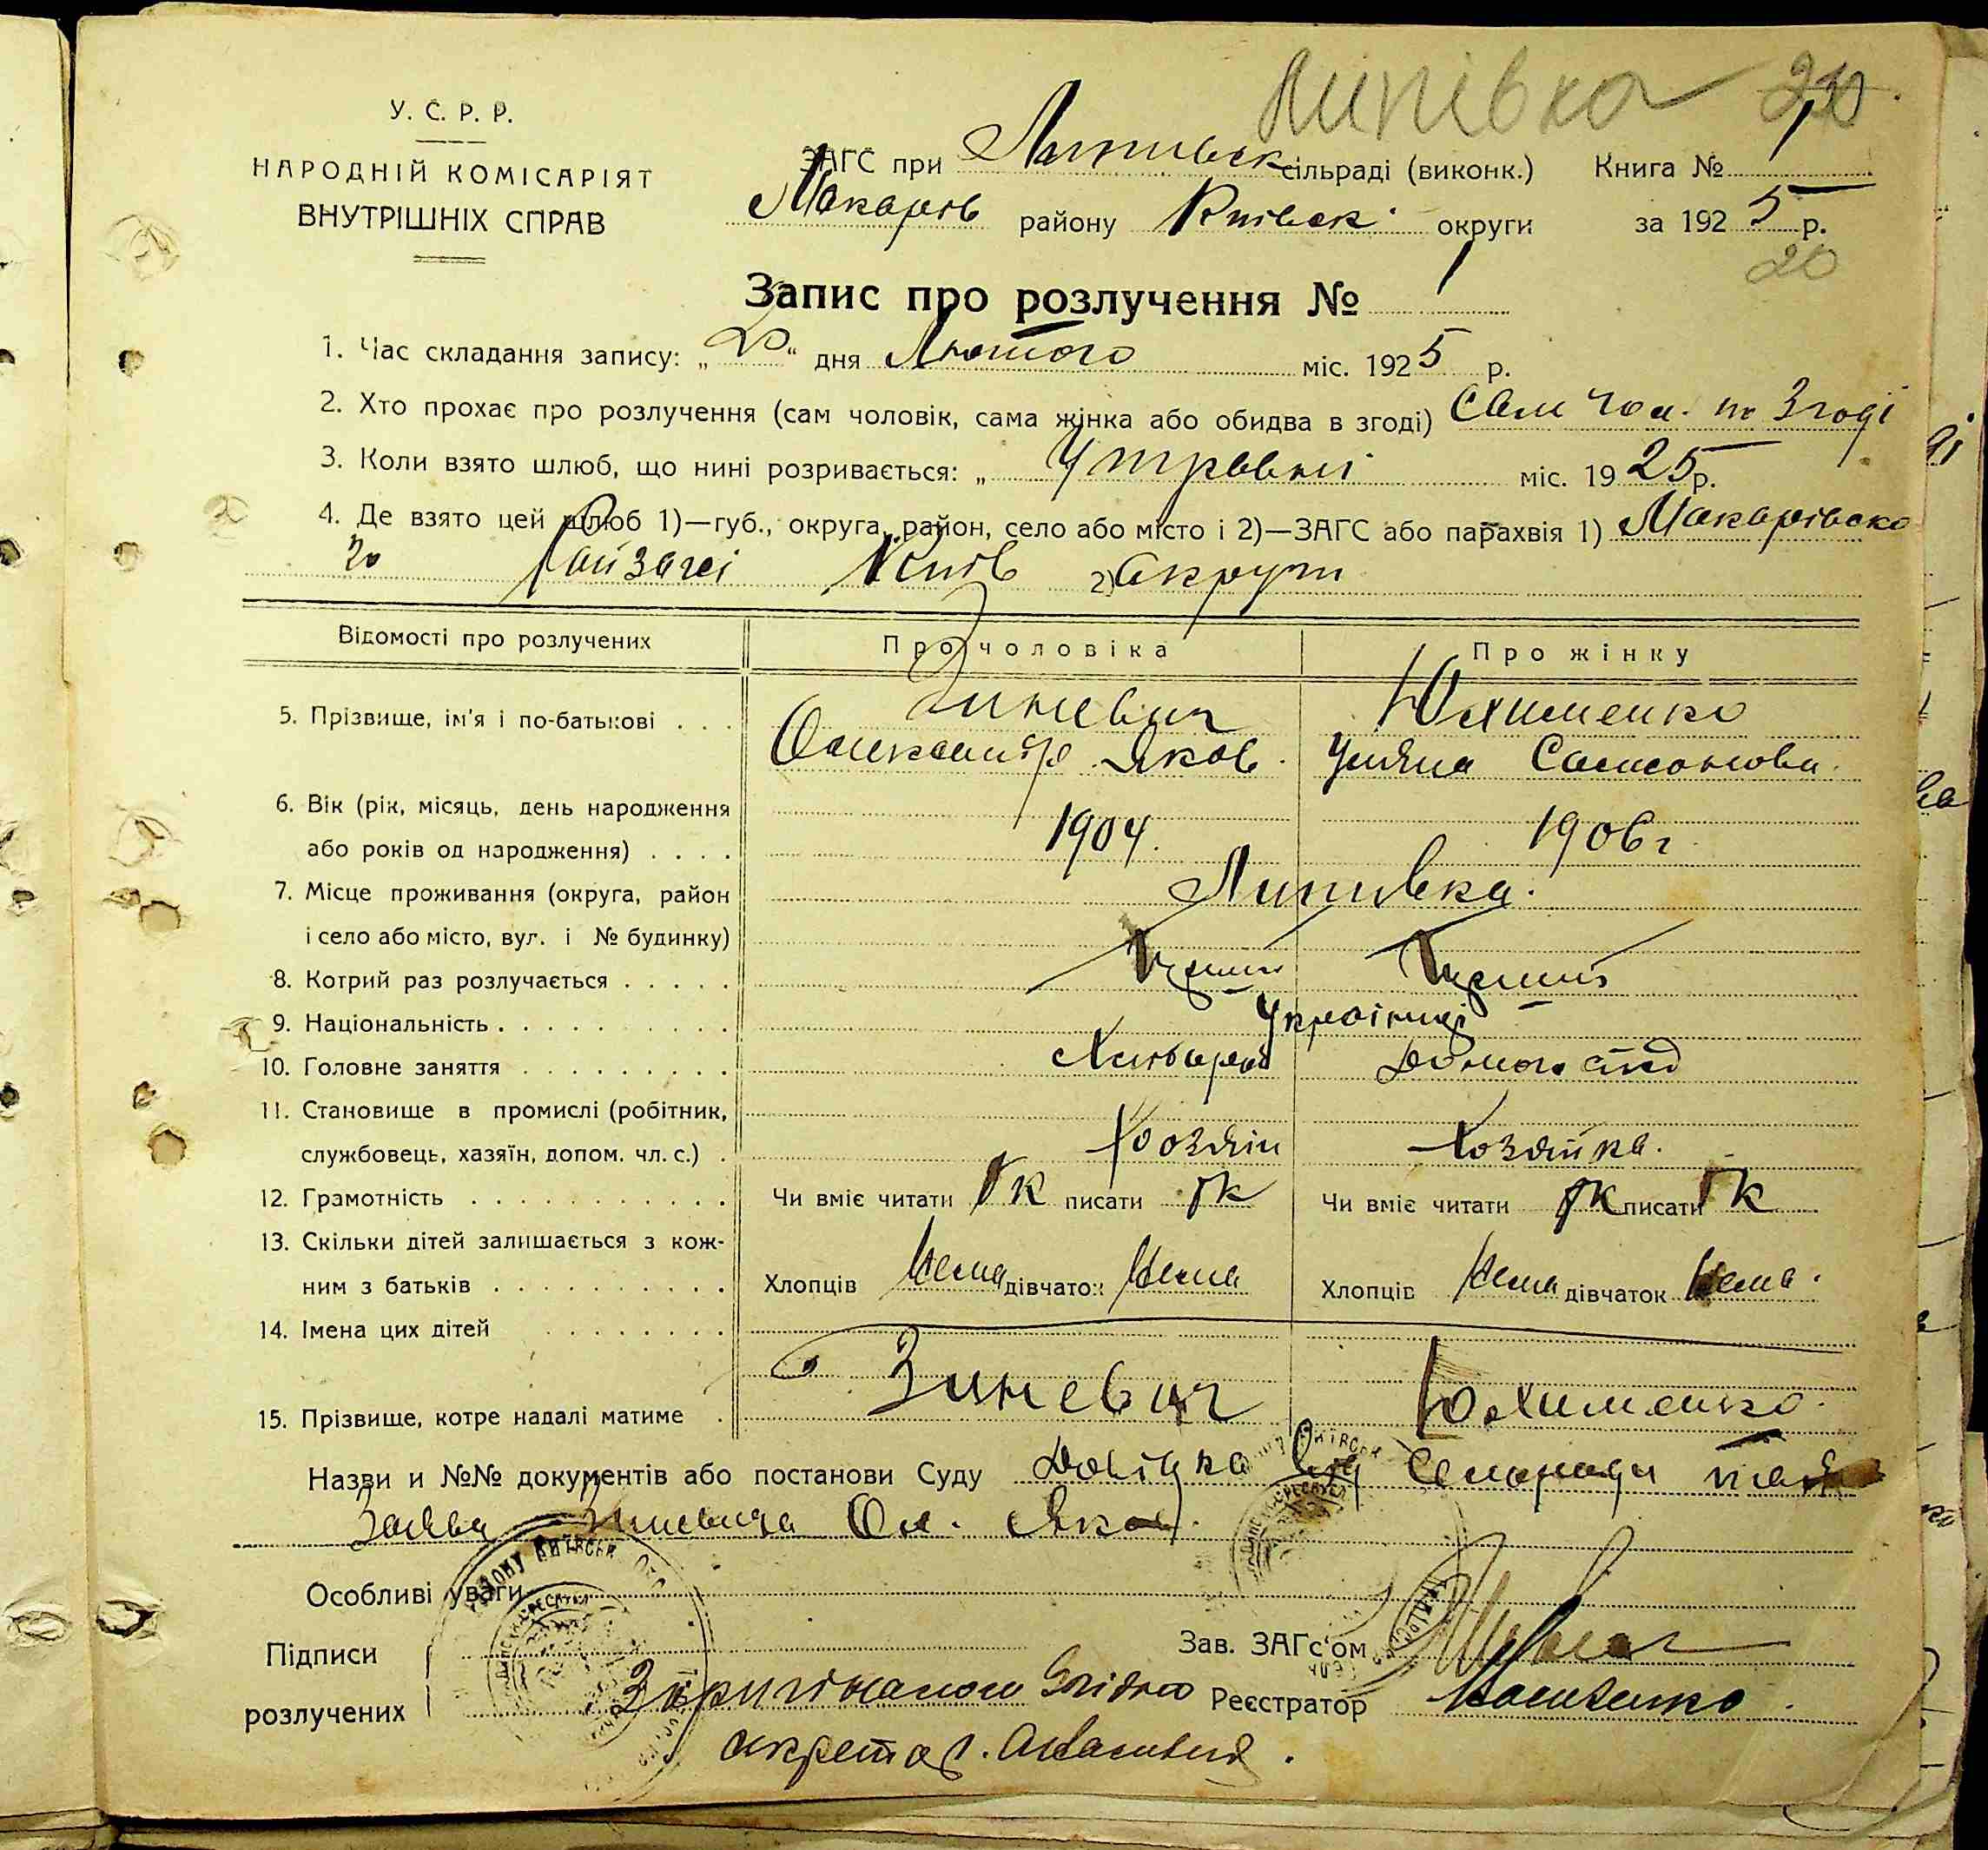 Липівка 20
У. С. Р. Р.
НАРОДНІЙ КОМІСАРІЯТ
ВНУТРІШНІХ СПРАВ
ЗАГС при Липивск сільраді (виконк.) Книга № 1
Макарів району Київськ округи за 1925 р.
20
Запис про розлучення № 1
1. Час складання запису: „ “ дня Лютого міс. 1925 р.
2. Хто прохає про розлучення (сам чоловік, сама жінка або обидва в згоді) Сам чол. по Згоді
3. Коли взято шлюб, що нині розривається: „ У травні міс. 1925 р.
4. Де взято цей шлюб 1)—губ., округа, район, село або місто і 2)—ЗАГС або парахвія 1) Макарівско
го Райзагсі Київ 2) Округи
Відомості про розлучених Про чоловіка Про жінку
5. Прізвище, ім'я і по-батькові . . . Зиневич Юхименко
Олександр Яков. Уляна Самсонова.
6. Вік (рік, місяць, день народження
або років од народження) . . . . 1904. 1906 г.
7. Місце проживання (округа, район Липивка.
і село або місто, вул. і № будинку)
8. Котрий раз розлучається . . . . .
9. Національність . . . . . . . . . . Українці
10. Головне заняття . . . . . . . . . Хлібороб
11. Становище в промислі (робітник,
службовець, хазяїн, допом. чл. с.) . Хозяін Хозяйка.
12. Грамотність . . . . . . . . . . . Чи вміє читати писати Чи вміє читати писати
13. Скільки дітей залишається з кож-
ним з батьків . . . . . . . . . . Хлопців Нема дівчаток Нема Хлопців Нема дівчаток Нема.
14. Імена цих дітей . . . . . . . .
15. Прізвище, котре надалі матиме . Зиневич Юхименко.
Назви и №№ документів або постанови Суду Довідка від Сельради та
Заява Зиневича Ол. Яков.
Особливі уваги
Підписи Зав. ЗАГс'ом
розлучених З оригіналом Згідно Реєстратор
секретар.